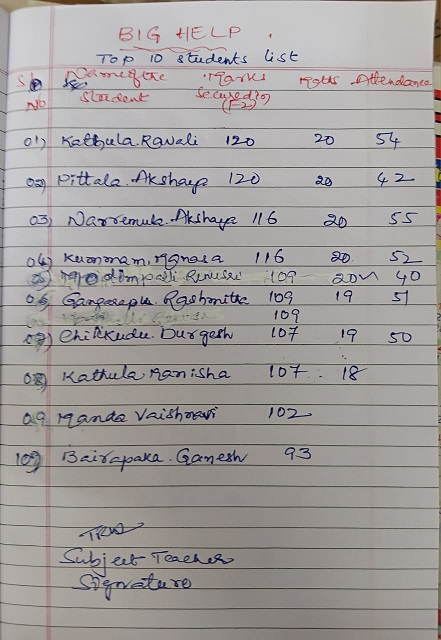 BIG HELP.
Top 10 students list
Sl No Name of the Student Marks Secured in (F2) Maths Attendance
01) Kathula. Ravali 120 20 54
02) Pittala. Akshaya 120 20 42
03) Narremula. Akshaya 116 20 55
04) Kummam. Manasa 116 20 52
109 20 40
06) Rashmitha 109 19 51
109
07) Chikkudu. Durgesh 107 19 50
08) Kathula Manisha 107 18
09 Manda Vaishnavi 102
10) Bairapaka. Ganesh 93
Subject Teacher
Signature